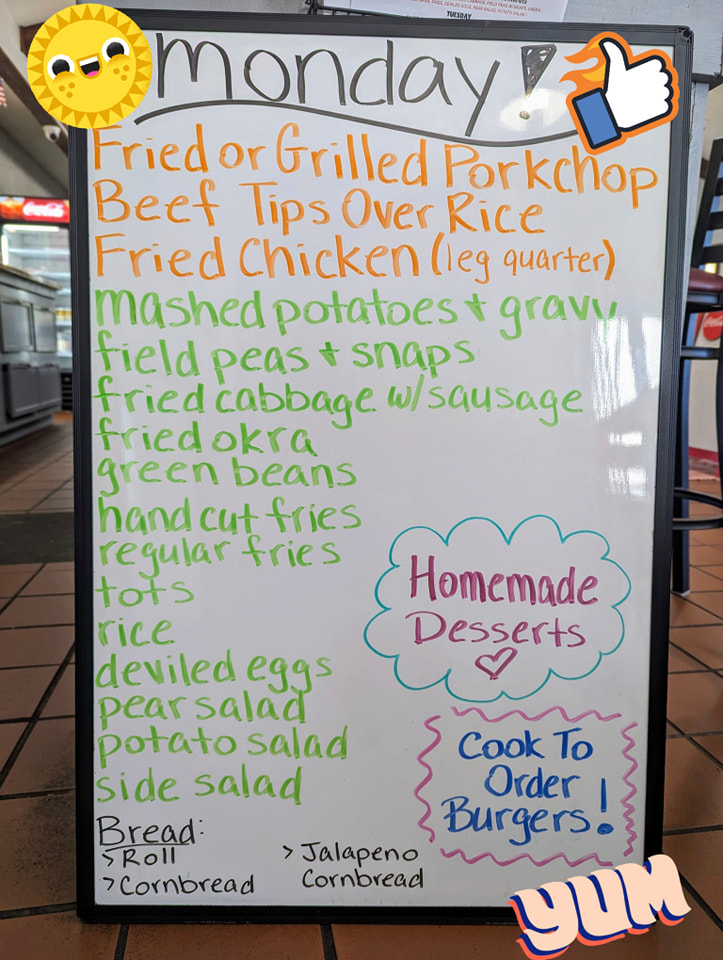 TUESDAY
Monday!
Fried or Grilled Porkchop
Beef Tips Over Rice
Fried Chicken (leg quarter)
mashed potatoes + gravy
field peas + snaps
fried cabbage w/sausage
fried okra
green beans
hand cut fries
regular fries
tots
rice
deviled eggs
pear salad
potato salad
side salad
Homemade
Desserts
Cook To
Order
Burgers!
Bread:
> Roll
> Cornbread
> Jalapeno
Cornbread
YUM
Coca-Cola